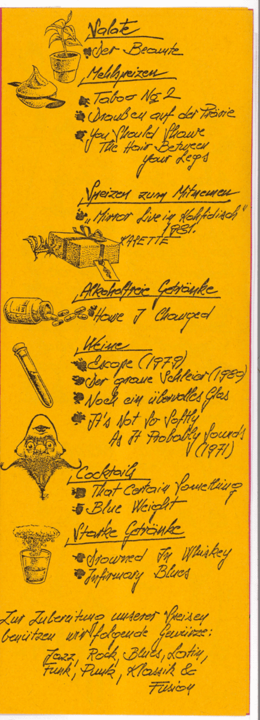 Salate
Der Beamte
Mehlspeisen
Taboo No 2
Draußen auf der Prärie
You Should Shave
The Hair Between
Your Legs
Speisen zum Mitnemen
"Mirror Live in Kohfidisch"
1981.
KASETTE
Alkoholfreie Getränke
Have I Changed
Weine
Escape (1979)
Der graue Schleier (1980)
Noch ein übervolles Glas
It's Not So Softly
As It Probably Sounds
(1971)
Cocktails
That Certain Something
Blue Weight
Starke Getränke
Drowned In Whiskey
Infirmary Blues
Zur Zubereitung unserer Speisen
benützen wir folgende Gewürze:
Jazz, Rock, Blues, Latin,
Funk, Punk, Klassik &
Fusion